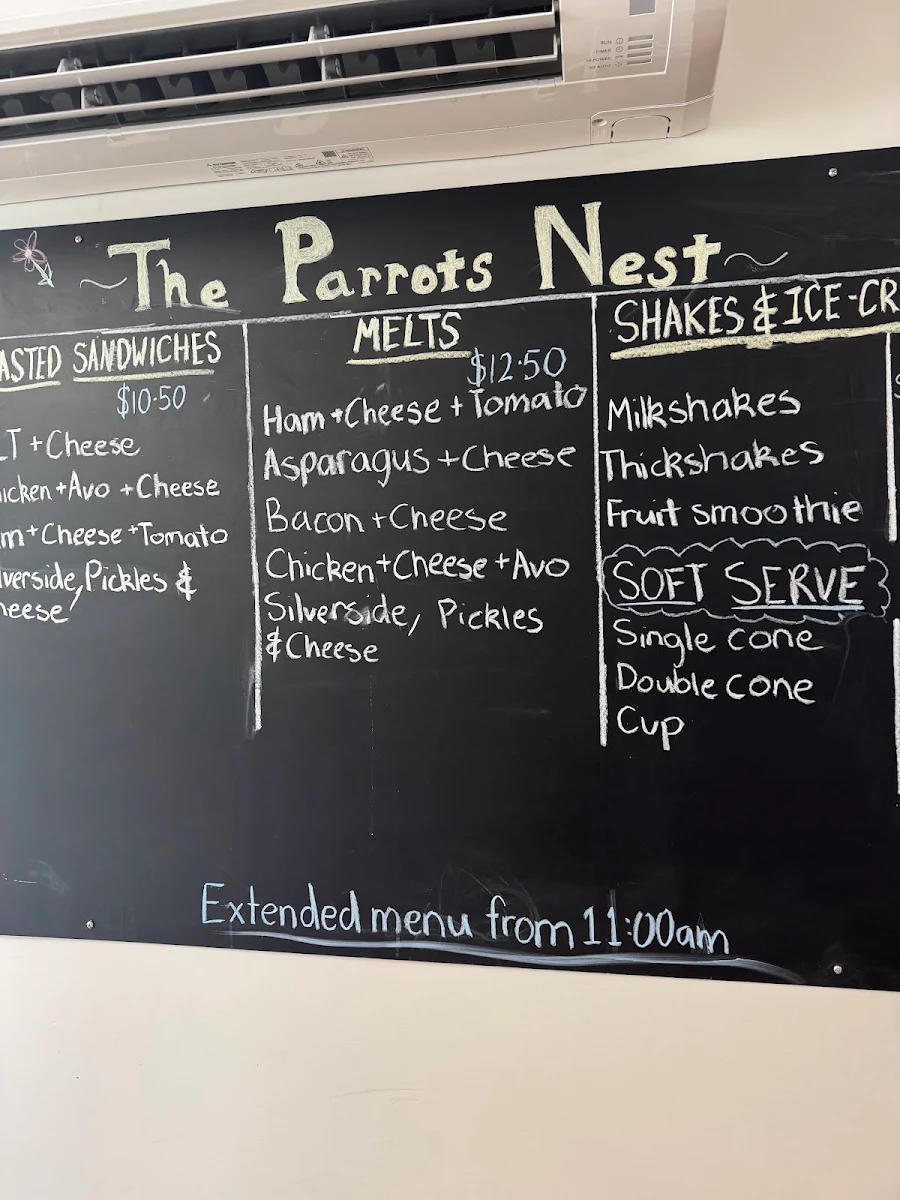 The Parrots Nest
ASTED SANDWICHES
$10.50
LT + Cheese
icken + Avo + Cheese
m + Cheese + Tomato
lverside, Pickles &
heese
MELTS
$12.50
Ham + Cheese + Tomato
Asparagus + Cheese
Bacon + Cheese
Chicken + Cheese + Avo
Silverside, Pickles
& Cheese
SHAKES & ICE-CR
Milkshakes
Thickshakes
Fruit smoothie
SOFT SERVE
Single cone
Double cone
Cup
Extended menu from 11:00am